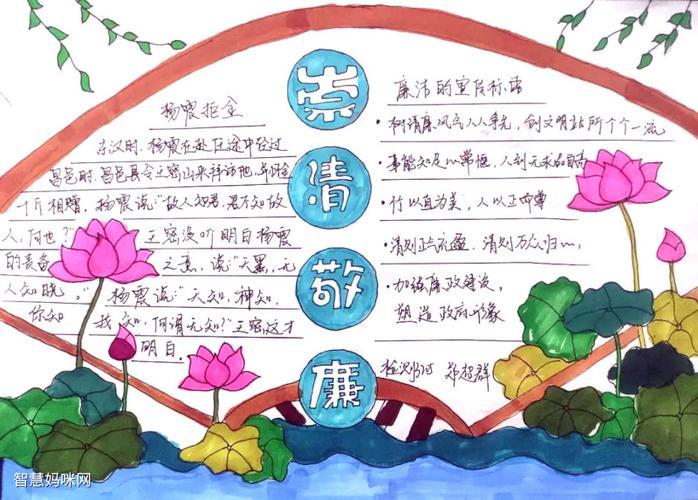 崇
清
敬
廉
杨震拒金
东汉时,杨震在赴任途中经过
昌邑时,昌邑县令王密出来拜访他,并以金
十斤相赠,杨震说:"故人知君,君不知故
人,何也?"王密没听明白杨震
的责备之意,说:"天黑,无
人知晓。"杨震说:"天知,神知,
你知我知,何谓无知?"王密这才
明白。
廉洁的宣传标语
·树清廉风气人人争先,创文明站所个个一流
·事能知足心常惬,人到无求品自高
·竹以直为美,人以正为尊
·清则正气充盈,清则万众归心
·加强廉政建设,
塑造政府形象
郑超群
智慧妈咪网